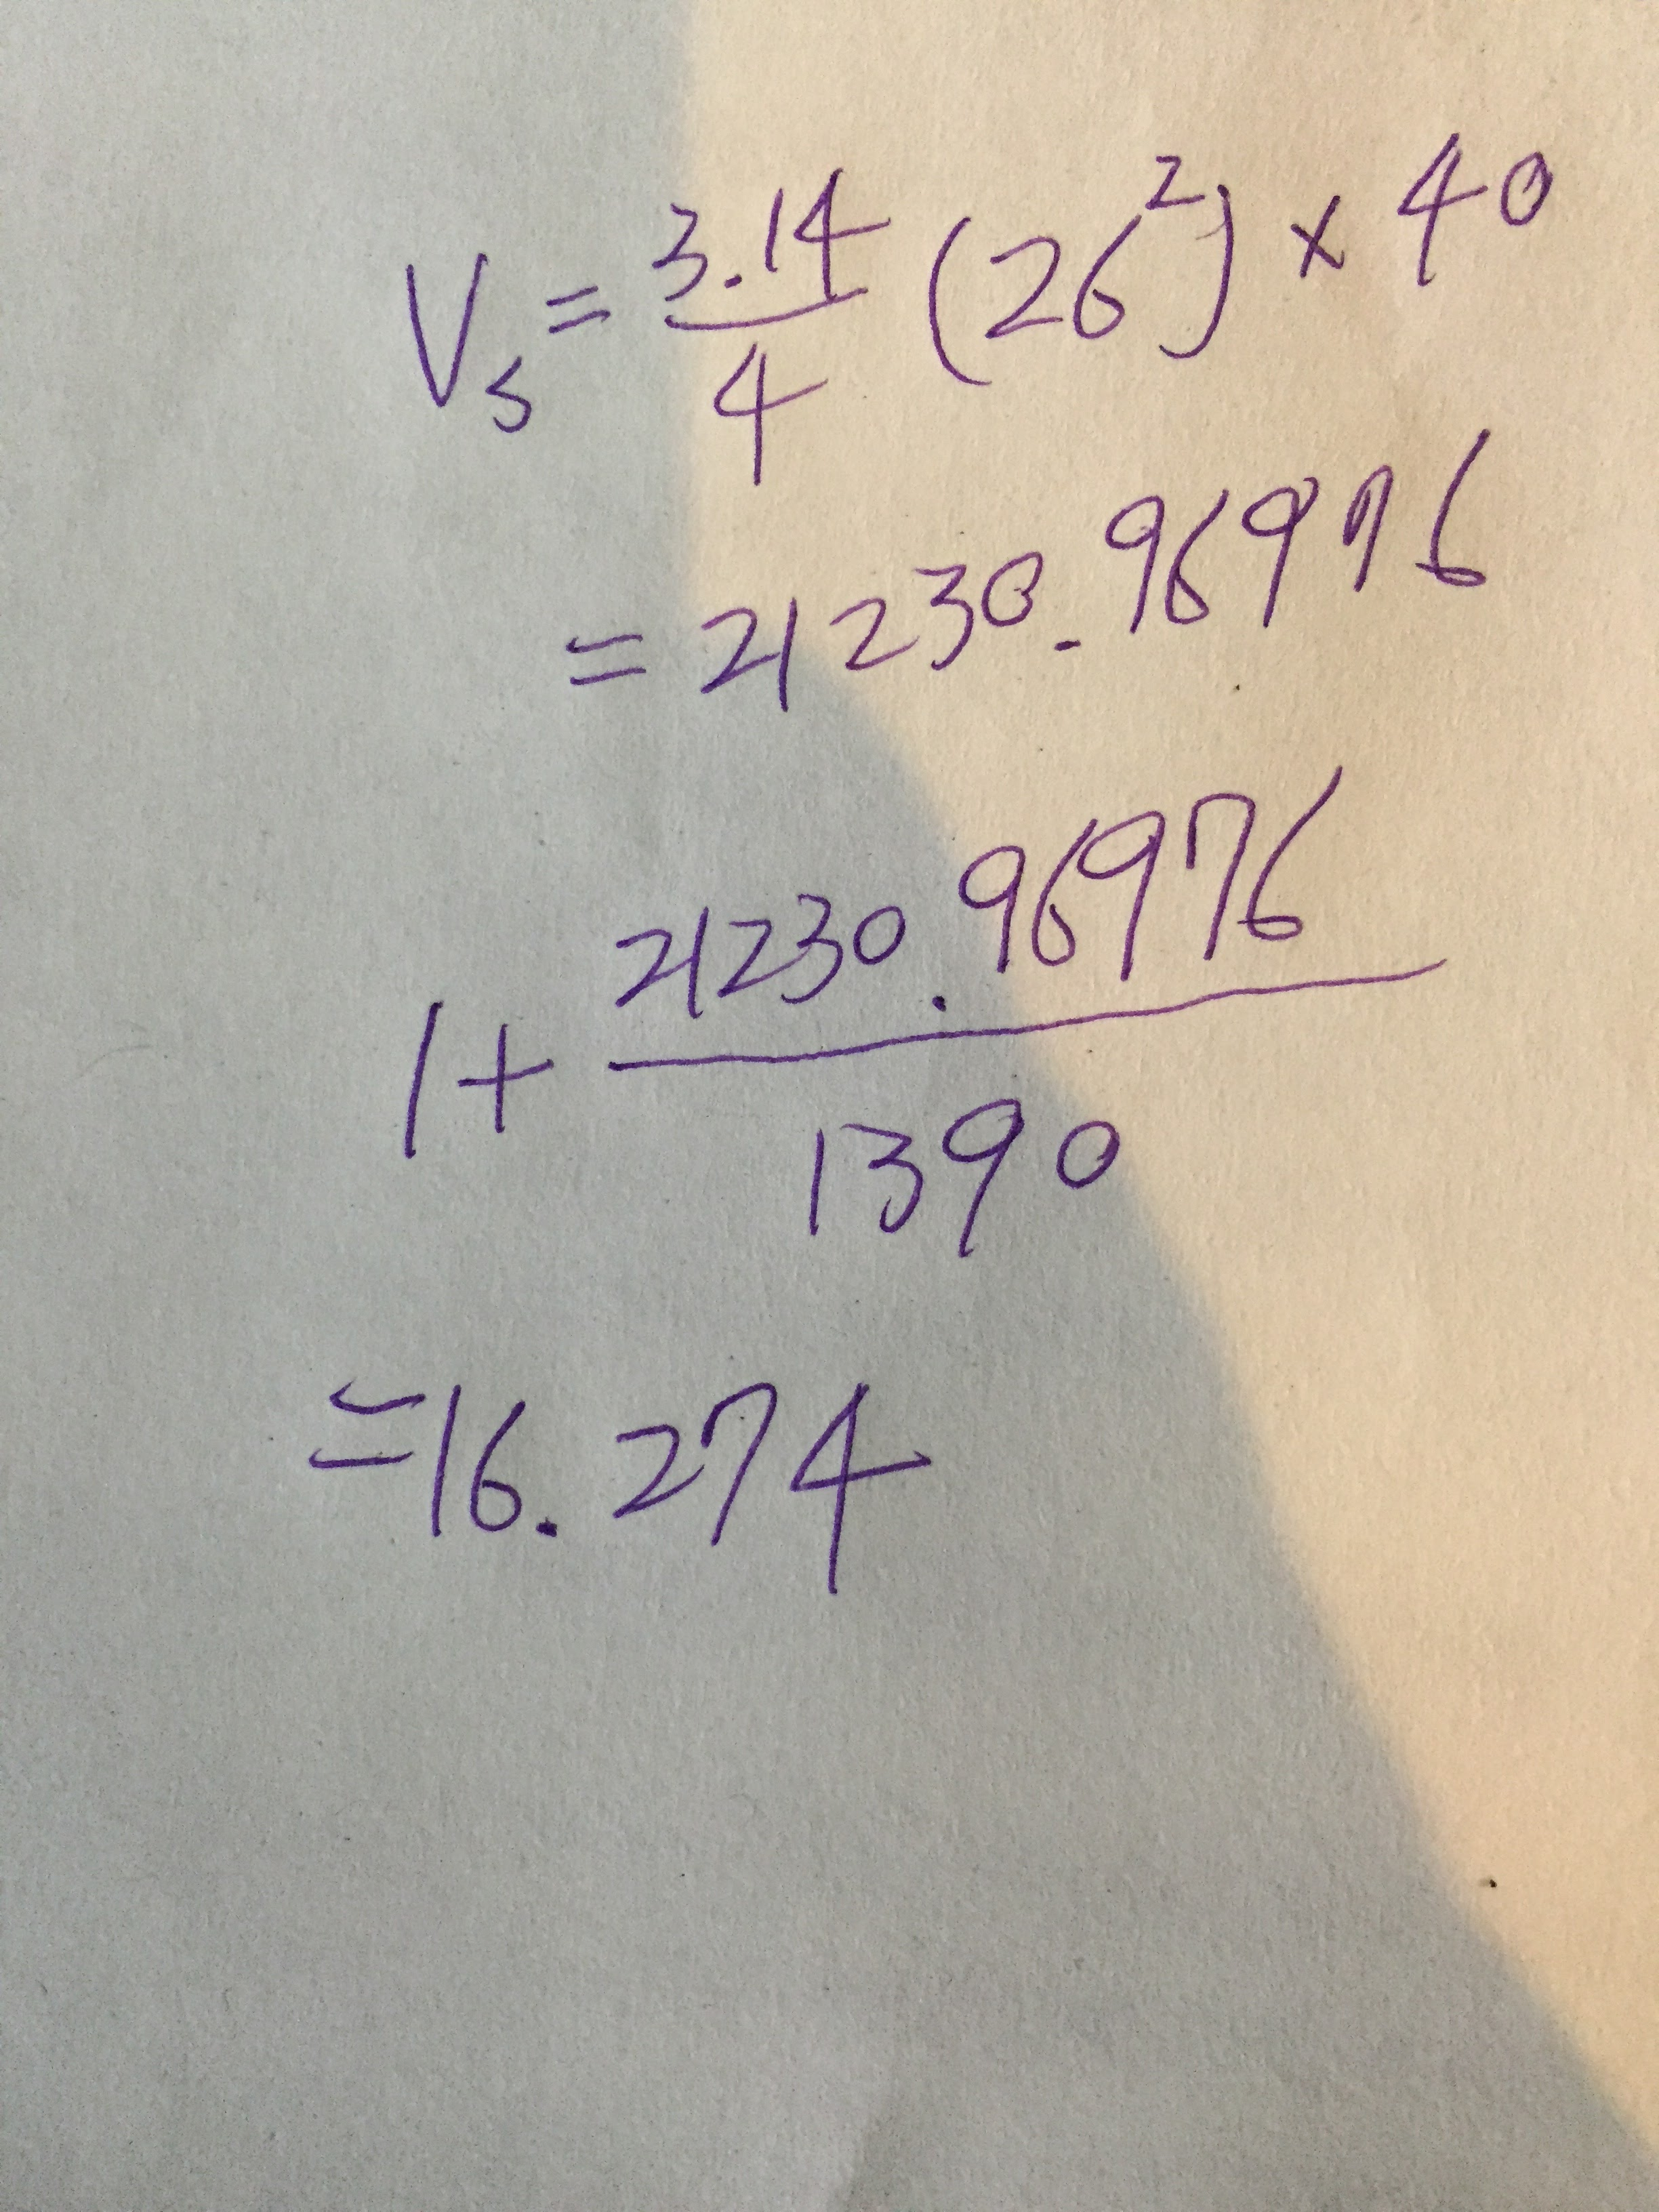 V₅ = 3.14/4 (26²) × 40
= 21230.96976
1 + 21230.96976/1390
= 16.274